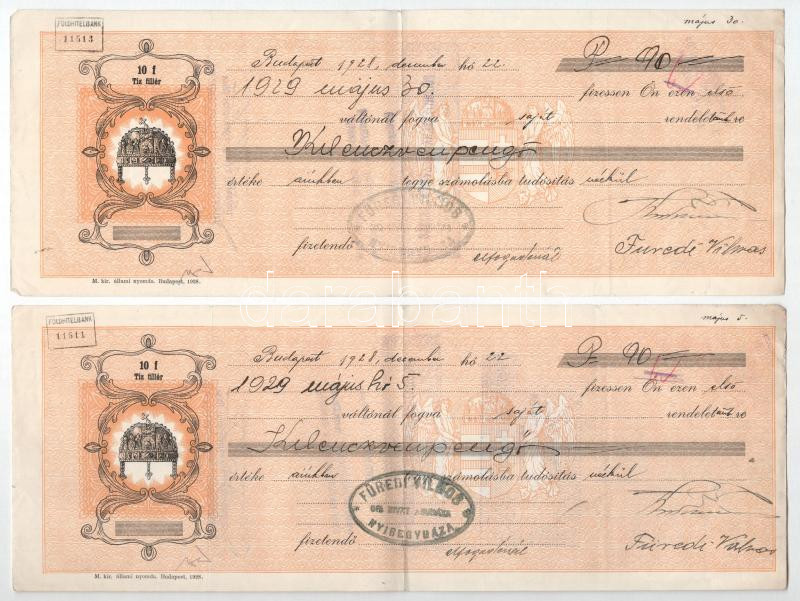 FÖLDHITELBANK
11513
május 30.
10 f
Tiz fillér
Budapest, 1928, december hó 22.
P 90
1929 május 30.
fizessen Ön ezen első
váltónál fogva saját rendeletünkre
Kilenczvenpengő
értéke árukban tegye számolásba tudósitás nélkül
FÜREDI VILMOS
fizetendő
elfogadónál
Füredi Vilmos
M. kir. állami nyomda. Budapest, 1928.
darabanth
FÖLDHITELBANK
11511
május 5.
10 f
Tiz fillér
Budapest, 1928, december hó 22
P 90
1929 május hó 5.
fizessen Ön ezen első
váltónál fogva saját rendeletünkre
Kilenczvenpengő
értéke árukban tegye számolásba tudósitás nélkül
FÜREDI VILMOS
NYIREGYHÁZA
fizetendő
elfogadónál
Füredi Vilmos
M. kir. állami nyomda. Budapest, 1928.